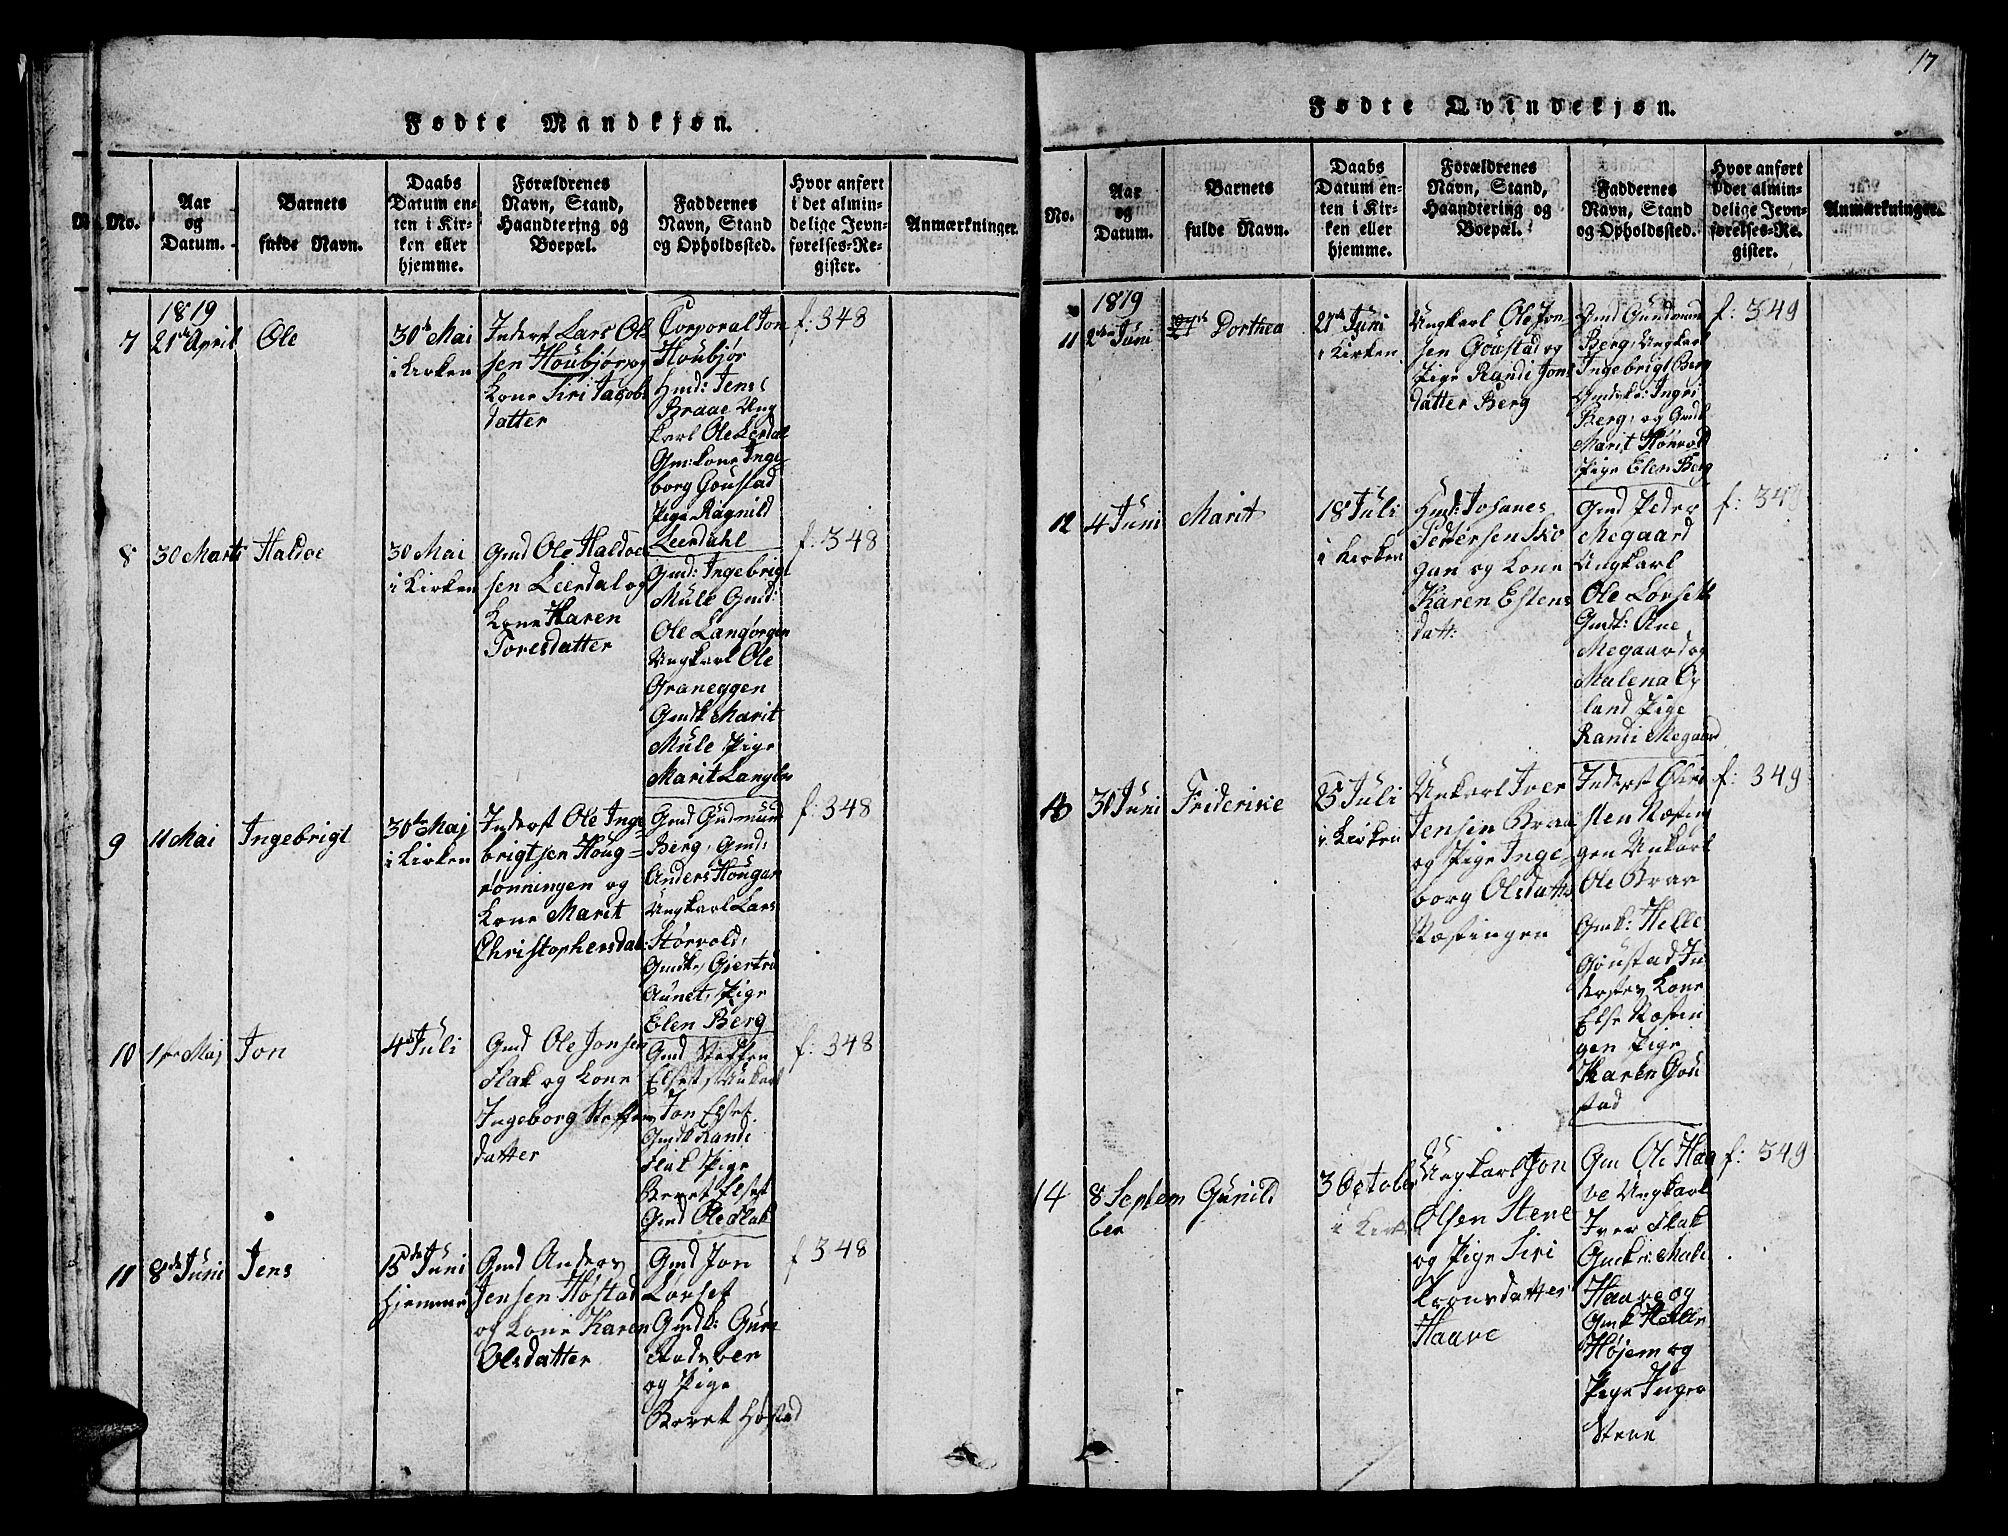 17
Fødte Mandkjøn.
No.
Aar
og
Datum.
Barnets
fulde Navn.
Daabs
Datum en-
ten i Kir-
ken eller
hjemme.
Forældrenes
Navn, Stand,
Haandtering og
Boepæl.
Faddernes
Navn, Stand
og Opholdssted.
Hvor anført
i det almin-
delige Jevn-
førelses-Re-
gister.
Anmærkninger.
1819
7
21de April
Ole
30te Mai
i Kirken
Inderst Lars Ol
sen Houbjør og
Kone Siri Jacobs
datter
Corporal Jon
Houbjør
Gmd: Jens
Braae Ung
karl Ole Lerdal
Gm: kone Inge
borg Goustad
Pige Ragnild
Leerdahl
f: 348
8
30 Marts
Haldoe
30 Mai
i Kirken
Gmd Ole Haldoe
sen Leerdal og
Kone Karen
Toresdatter
Gmd: Ingebrigt
Mule Gmd:
Ole Langørgen
Ungkarl Ole
Graneggen
Gmdk Marit
Mule Pige
Marit Langør
f: 348
9
11 Mai
Ingebrigt
30te Maj
i Kirken
Inderst Ole Inge
brigtsen Houg=
rønningen og
Kone Marit
Christophersdat:
Gmd Gudmun
Berg, Gmd:
Anders Hougan
Ungkarl Lars
Størvold,
Gmdk, Gjertru
Aunet, Pige
Elen Berg
f: 348
10
1ste Maj
Jon
4de Juli
Gmd Ole Jonsen
Flak og Kone
Ingeborg Steffens
datter
Gmd Steffen
Elset, Unkarl
Jon Elset
Gmdk Randi
Flak Pige
Beret Elset
Gmd Ole Flak
f: 348
11
8de Juni
Jens
15de Juni
Hjemme
Gmd Anders
Jensen Høstad
og Kone Karen
Olsdatter
Gmd Jon
Lørset
Gmdk: Guru
og Pige
Beret Høstad
f 348
Fødte Qvindekjøn.
No.
Aar
og
Datum.
Barnets
fulde Navn.
Daabs
Datum en-
ten i Kir-
ken eller
hjemme.
Forældrenes
Navn, Stand,
Haandtering og
Boepæl.
Faddernes
Navn, Stand
og Opholdssted.
Hvor anført
i det almin-
delige Jevn-
førelses-Re-
gister.
Anmærkninger.
1819
11
2den Juni
Dorthea
27de Juni
i Kirken
Ungkarl Ole Jon-
sen Goustad og
Pige Randi Jons
datter Berg
Gmd Gundmun
Berg, Ungkarl
Ingebrigt Berg
Gmdsk: Ingri
Berg, og Gmdk
Marit Størvold
Pige Elen Berg
f: 349
12
4 Juni
Marit
18 Juli
i Kirken
Hmd: Johanes
Pedersen Sko
gan og Kone
Karen Estens
datt:
Gmd Peder
Megaard
Ungkarl
Ole Lørset
Gmdk: Ane
Megaard og
Malena Ey
land Pige
Randi Megaard
f: 349
13
30 Juni
Friderike
25 Juli
i Kirken
Unkarl Iver
Jensen Braa
og Pige Inge
borg Olsdatter
Næstingen
Inderst Chri
sten Næstin
gen Unkarl
Ole Braa
Gmk: Helle
Goustad In
derstes Kone
Else Næstin
gen Pige
Karen Gou
stad
f: 349
14
8 Septem
ber
Gunild
3 October
i Kirk
Ungkarl Jon
Olsen Stene
og Pige Siri
datter
Haave
Gm Ole Haa
ve Ungkarl
Iver Flak
Gmk: Mali
Haave og
Gmk Helle
Højem og
Pige Ingeo
Stene
f: 349